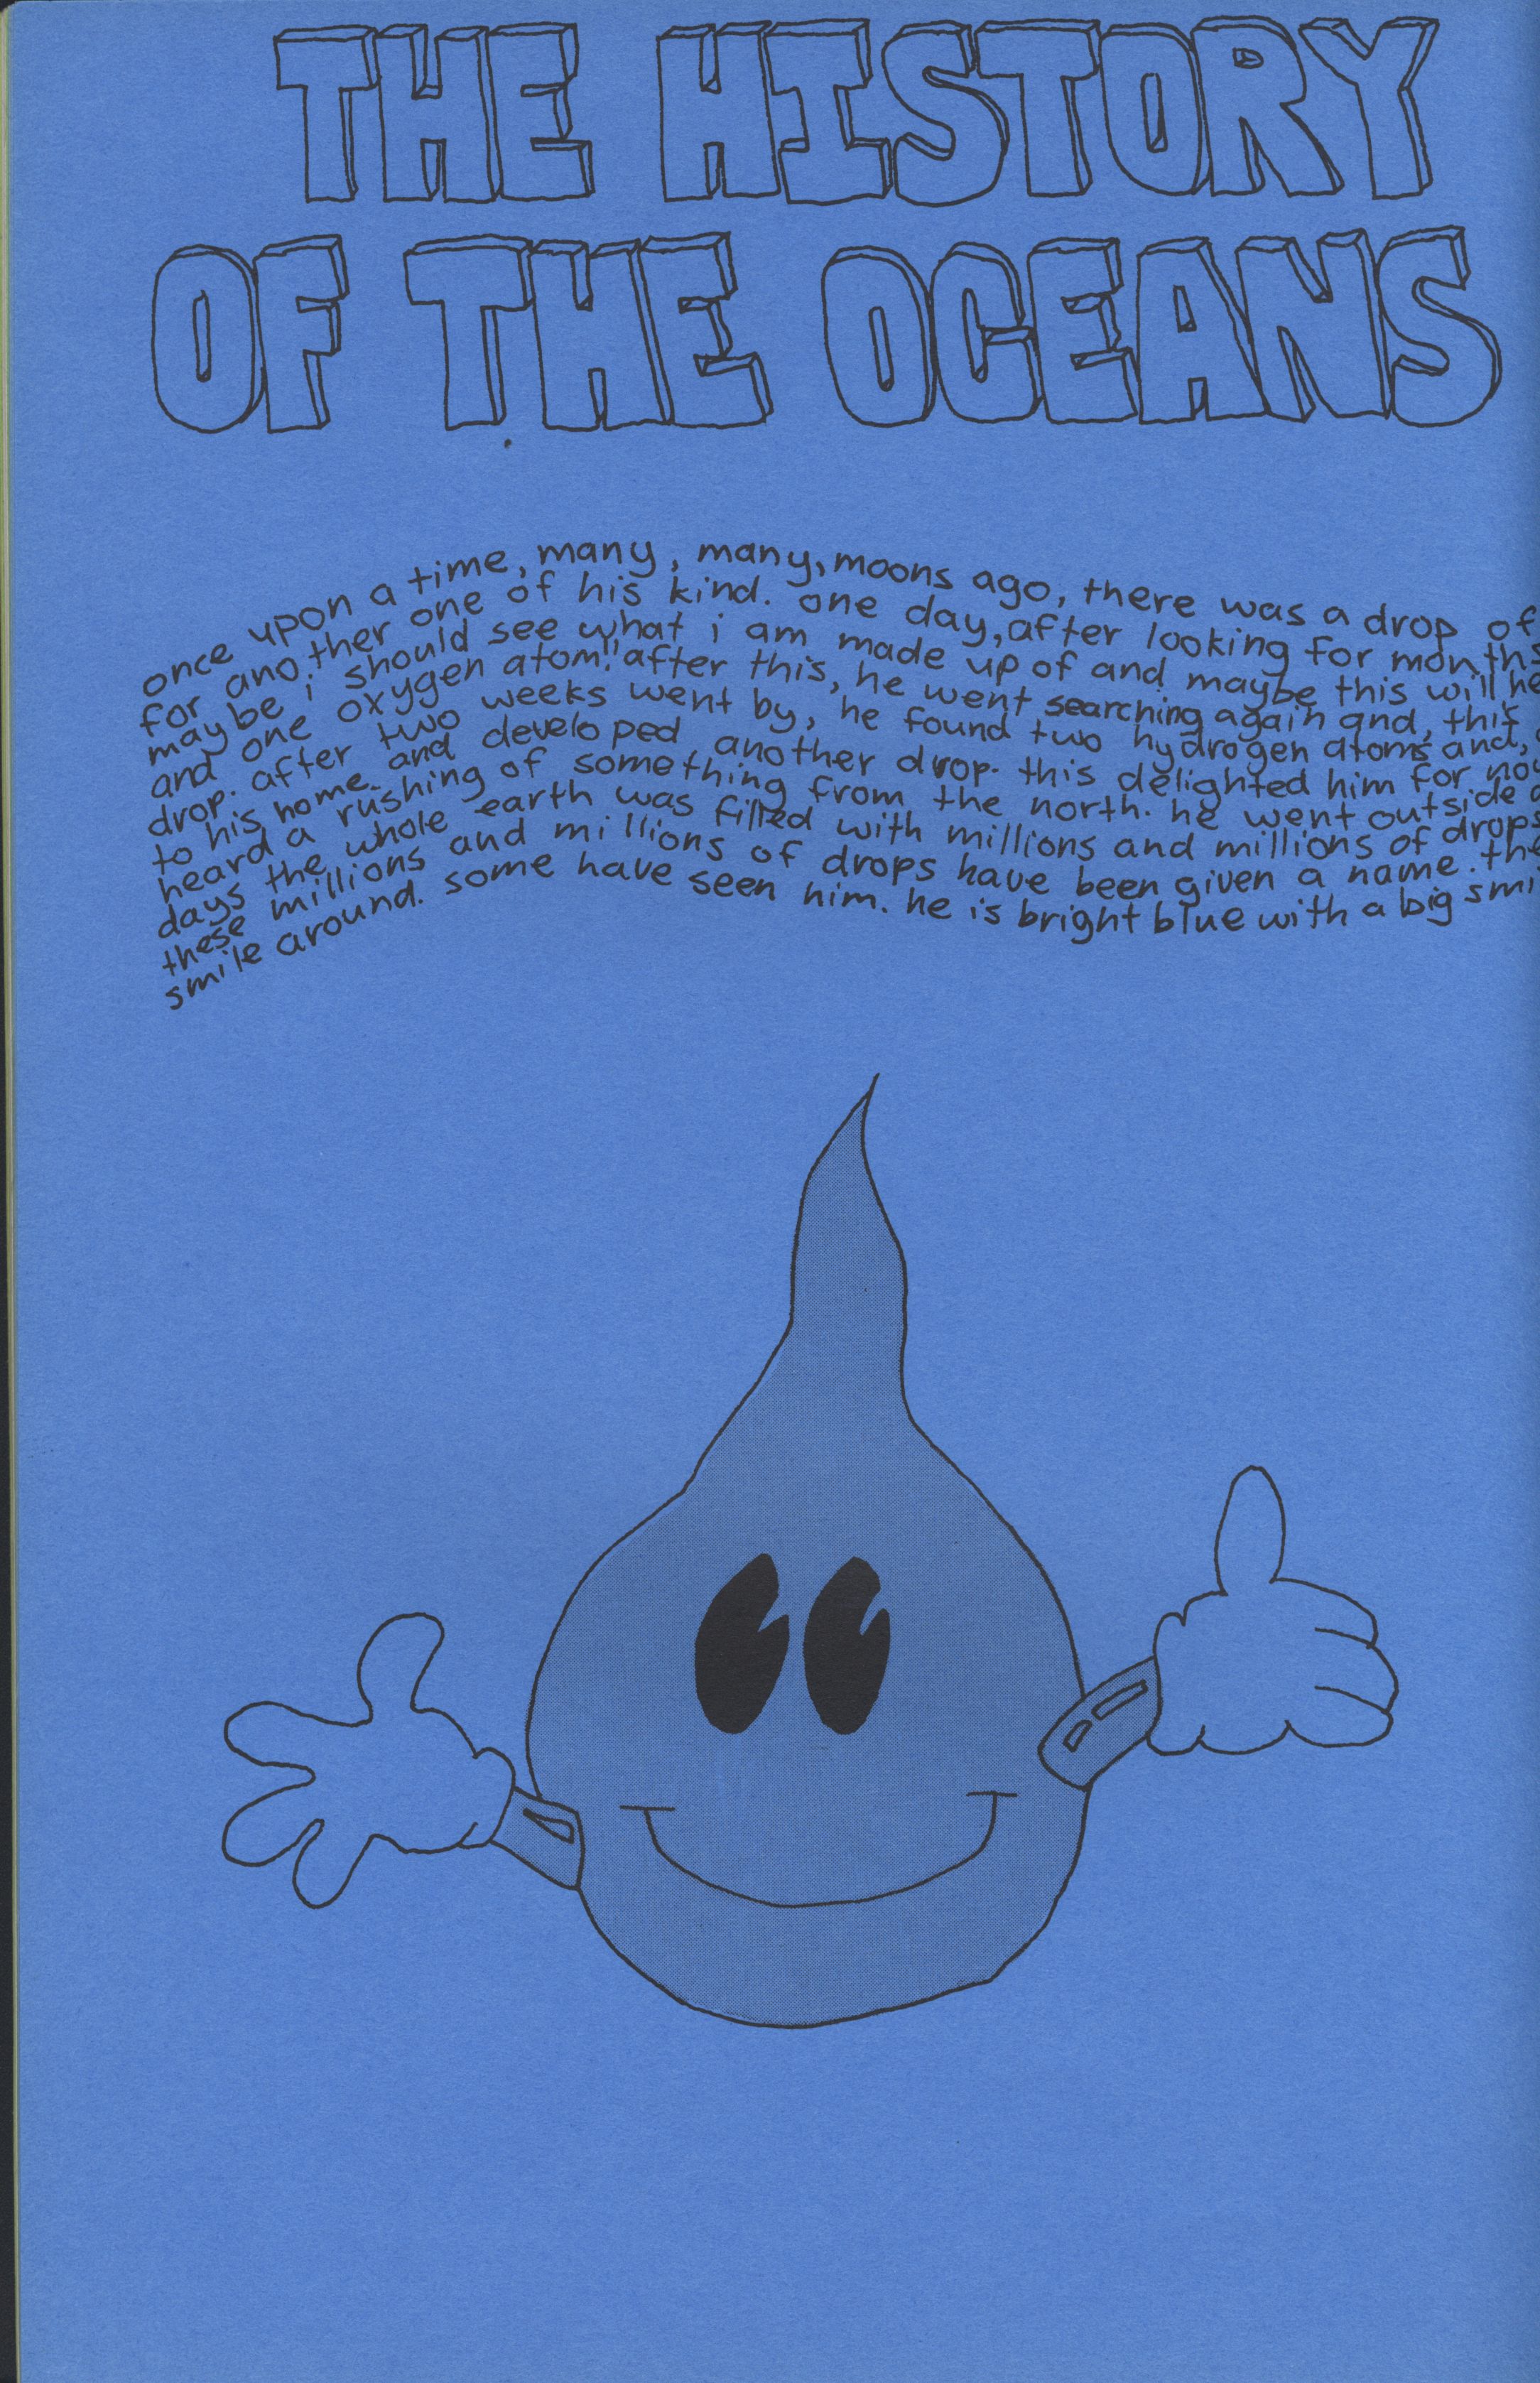 THE HISTORY
OF THE OCEANS
once upon a time, many, many, moons ago, there was a drop of
for another one of his kind. one day, after looking for months
maybe i should see what i am made up of and maybe this will he
and one oxygen atom!" after this, he went searching again and, this
drop. after two weeks went by, he found two hydrogen atoms and,
to his home and developed another drop. this delighted him for now
heard a rushing of something from the north. he went outside
days the whole earth was filled with millions and millions of drops
these millions and millions of drops have been given a name. the
smile around. some have seen him. he is bright blue with a big smi